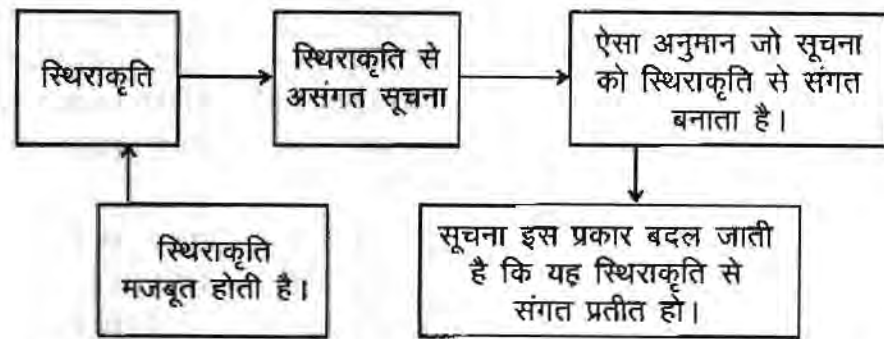 स्थिराकृति
स्थिराकृति से
असंगत सूचना
ऐसा अनुमान जो सूचना
को स्थिराकृति से संगत
बनाता है।
स्थिराकृति
मजबूत होती है।
सूचना इस प्रकार बदल जाती
है कि यह स्थिराकृति से
संगत प्रतीत हो।